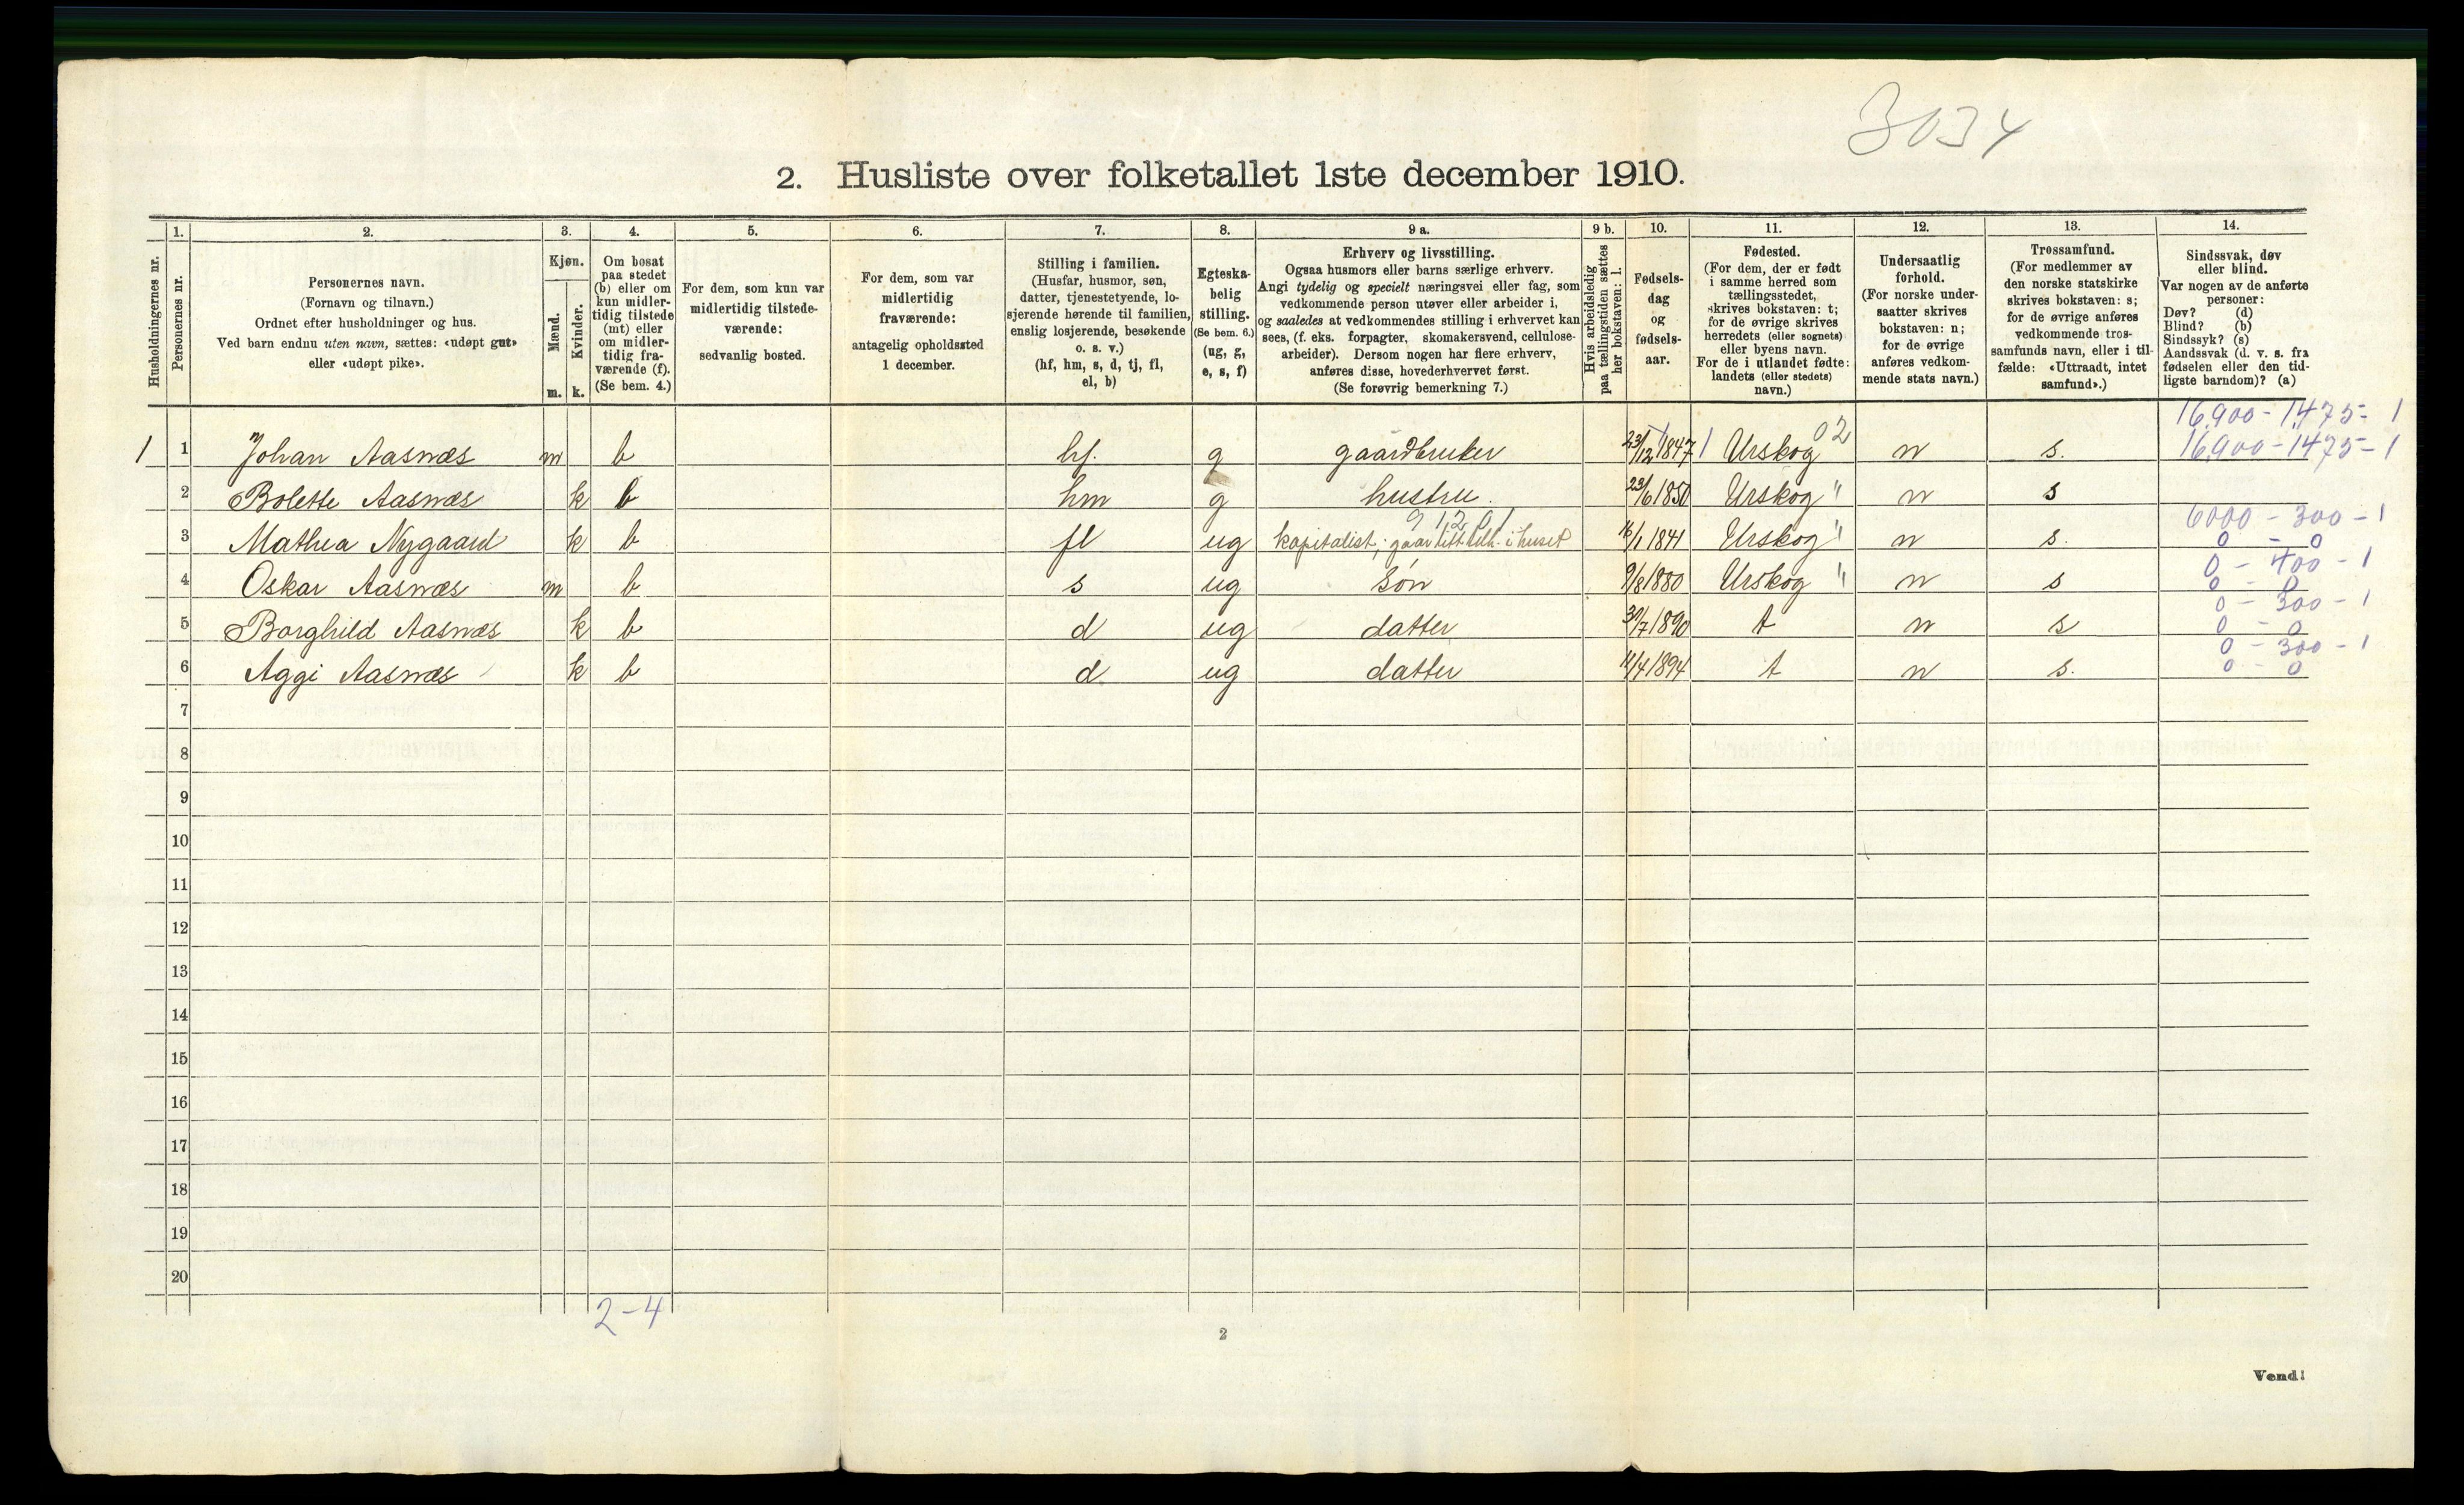 3034
2. Husliste over folketallet 1ste december 1910.
Husholdningernes nr.
1.
Personernes nr.
2.
Personernes navn.
(Fornavn og tilnavn.)
Ordnet efter husholdninger og hus.
Ved barn endnu uten navn, sættes: «udøpt gut»
eller «udøpt pike».
3.
Kjøn.
Mænd.
Kvinder.
m. k.
4.
Om bosat
paa stedet
(b) eller om
kun midler-
tidig tilstede
(mt) eller
om midler-
tidig fra-
værende (f).
(Se bem. 4.)
5.
For dem, som kun var
midlertidig tilstede-
værende:
sedvanlig bosted.
6.
For dem, som var
midlertidig
fraværende:
antagelig opholdssted
1 december.
7.
Stilling i familien.
(Husfar, husmor, søn,
datter, tjenestetyende, lo-
sjerende hørende til familien,
enslig losjerende, besøkende
o. s. v.)
(hf, hm, s, d, tj, fl,
el, b)
8.
Egteska-
belig
stilling.
(Se bem. 6.)
(ug, g,
e, s, f)
9 a.
Erhverv og livsstilling.
Ogsaa husmors eller barns særlige erhverv.
Angi tydelig og specielt næringsvei eller fag, som
vedkommende person utøver eller arbeider i,
og saaledes at vedkommendes stilling i erhvervet kan
sees, (f. eks. forpagter, skomakersvend, cellulose-
arbeider). Dersom nogen har flere erhverv,
anføres disse, hovederhvervet først.
(Se forøvrig bemerkning 7.)
9 b.
Hvis arbeidsledig
paa tællingstiden sættes
her bokstaven: l.
10.
Fødsels-
dag
og
fødsels-
aar.
11.
Fødested.
(For dem, der er født
i samme herred som
tællingsstedet,
skrives bokstaven: t;
for de øvrige skrives
herredets (eller sognets)
eller byens navn.
For de i utlandet fødte:
landets (eller stedets)
navn.)
12.
Undersaatlig
forhold.
(For norske under-
saatter skrives
bokstaven: n;
for de øvrige
anføres vedkom-
mende stats navn.)
13.
Trossamfund.
(For medlemmer av
den norske statskirke
skrives bokstaven: s;
for de øvrige anføres
vedkommende tros-
samfunds navn, eller i til-
fælde: «Uttraadt, intet
samfund».)
14.
Sindssvak, døv
eller blind.
Var nogen av de anførte
personer:
Døv? (d)
Blind? (b)
Sindssyk? (s)
Aandssvak (d. v. s. fra
fødselen eller den tid-
ligste barndom)? (a)
16.900 - 1.475 - 1
1 1 Johan Aasnæs m b hf. g gaardbruker 23/12 1847 Urskog 02 n s. 16.900 - 1475 - 1
2 Bolette Aasnæs k b hm g hustru. 23/6 1850 Urskog " n s
6000 - 300 - 1
3 Mathea Nygaard k b fl ug kapitalist, i huset 16/1 1841 Urskog " n s. 0 - 0
0 - 400 - 1
4 Oskar Aasnæs m b s ug søn 9/8 1880 Urskog " n s 0 - 0
0 - 300 - 1
5 Borghild Aasnæs k b d ug datter 30/7 1890 t n s 0 - 0
0 - 300 - 1
6 Aggi Aasnæs k b d ug datter 4 1894 t n s. 0 - 0
7
8
9
10
11
12
13
14
15
16
17
18
19
20
2-4
2
Vend!